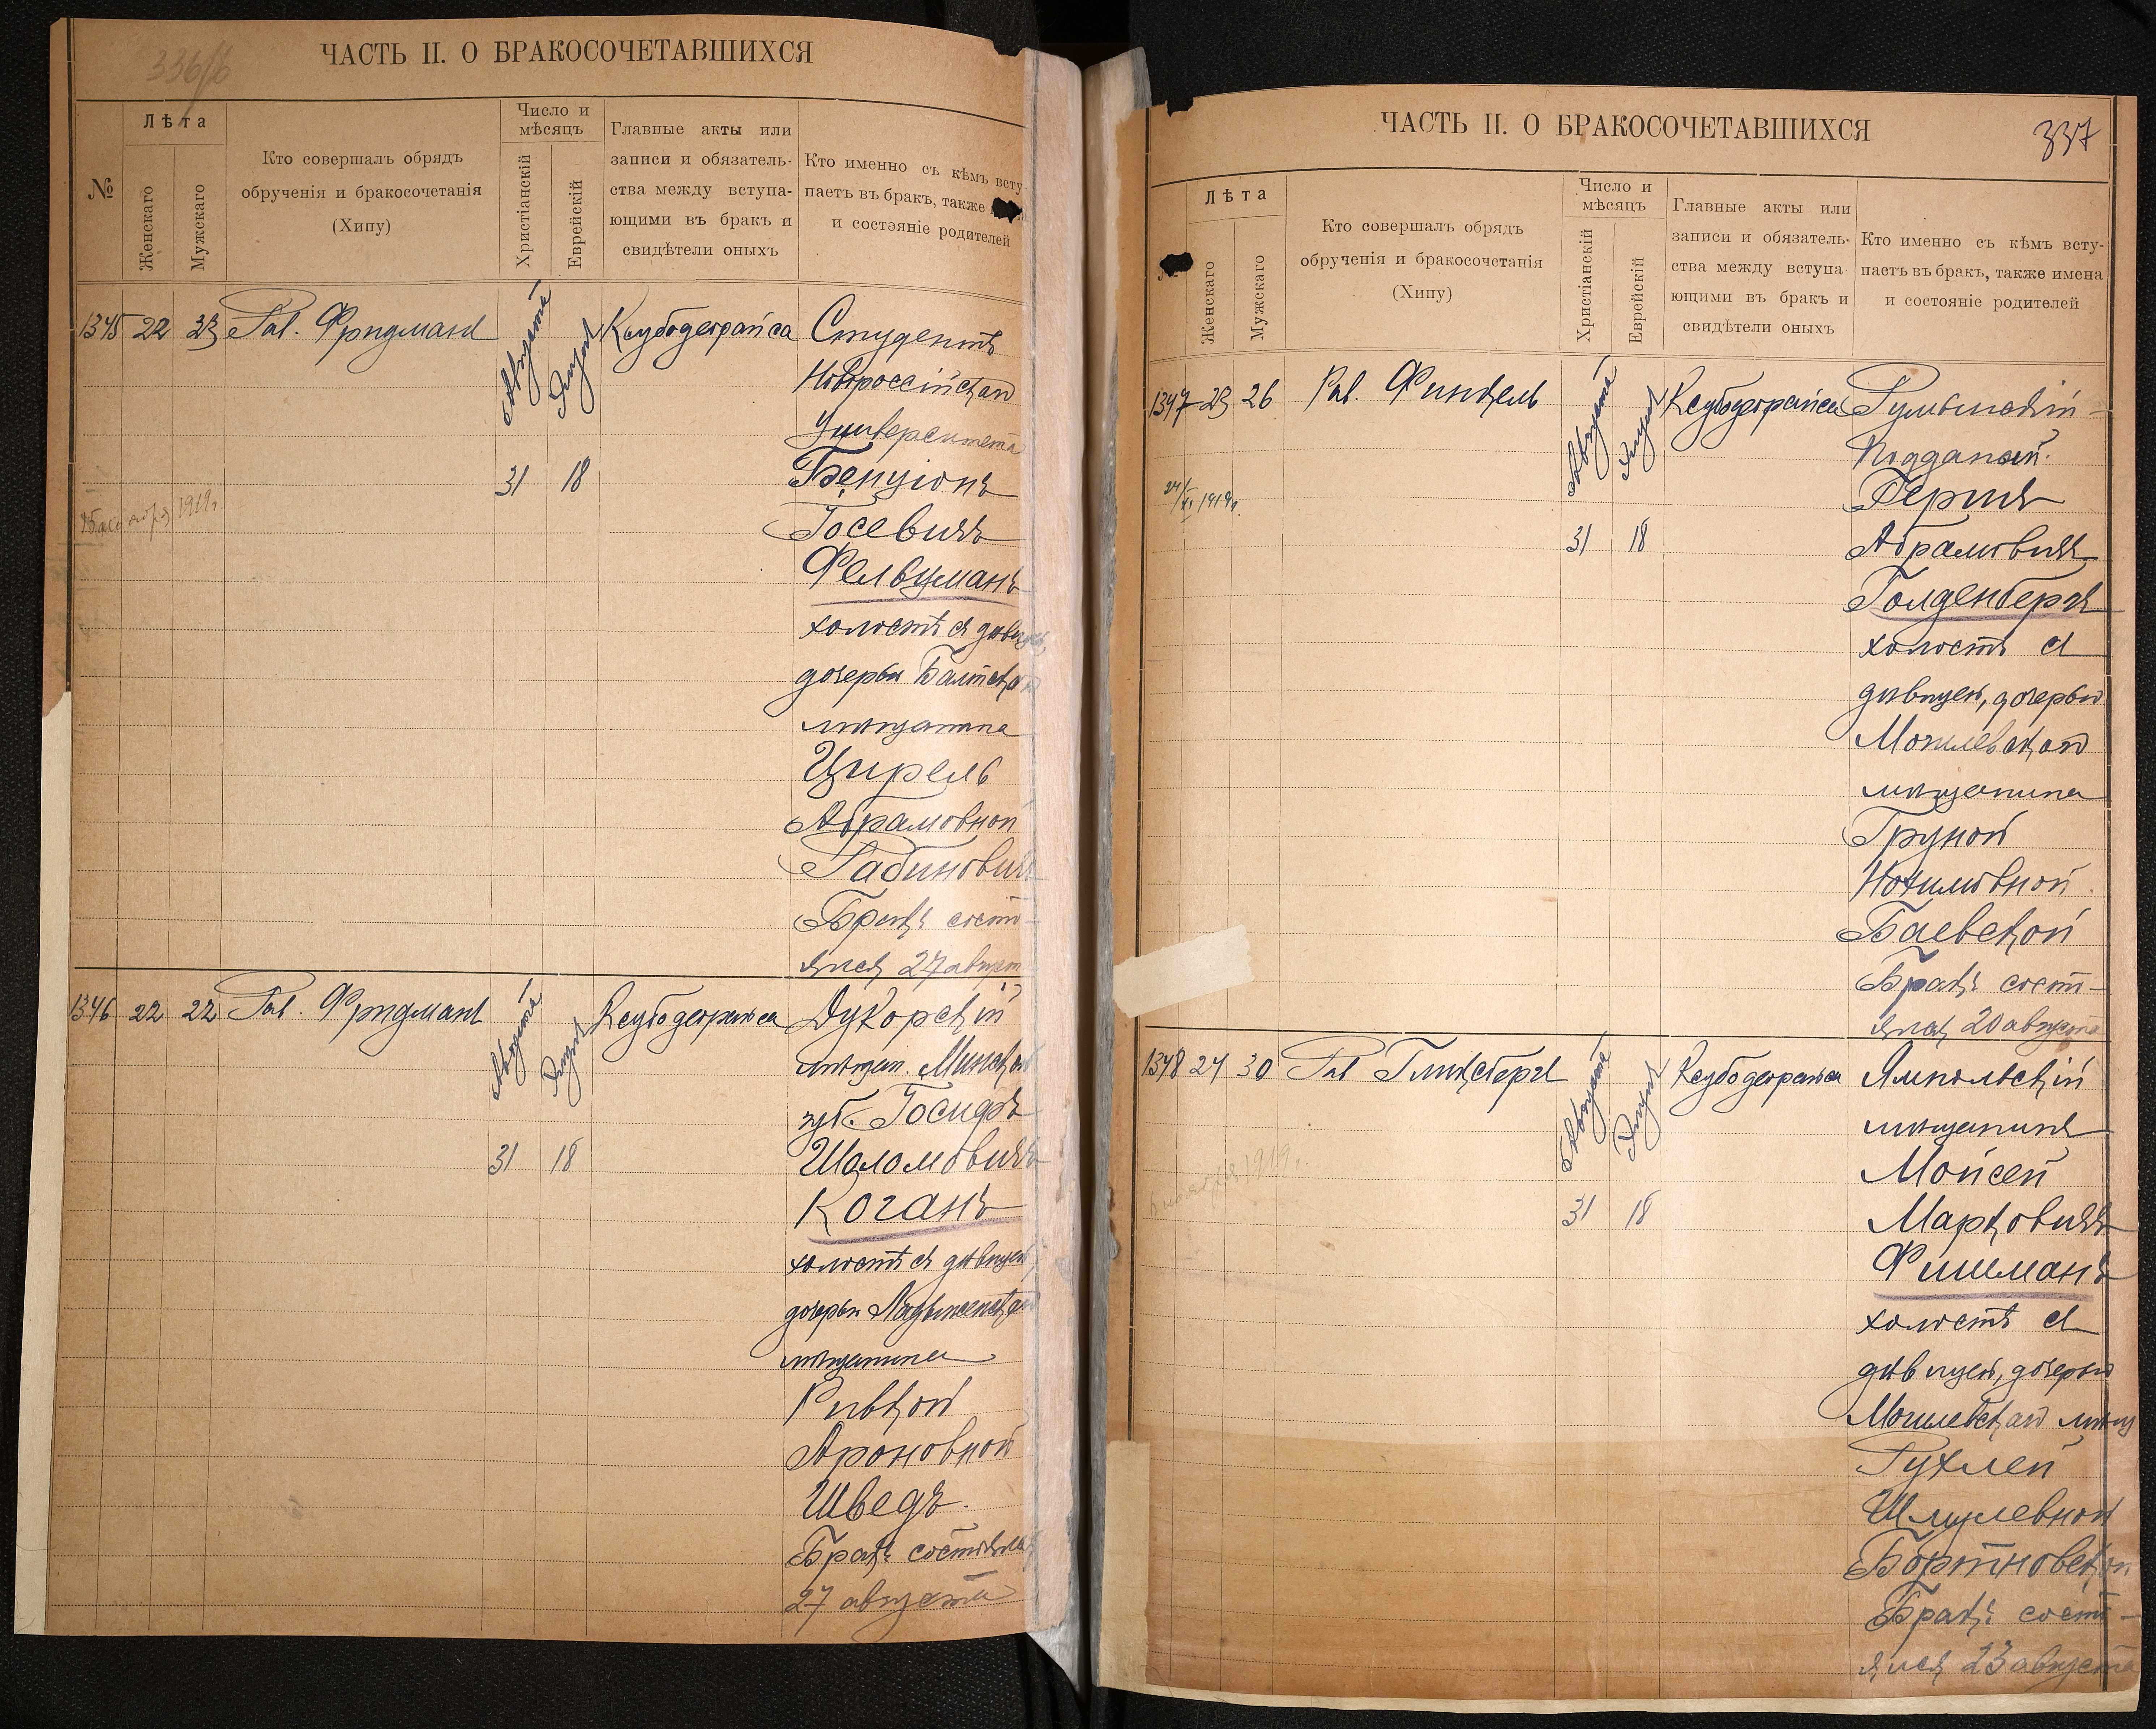 336/б
ЧАСТЬ II. О БРАКОСОЧЕТАВШИХСЯ
№
Лѣта
Женскаго
Мужскаго
Кто совершалъ обрядъ
обрученія и бракосочетанія
(Хипу)
Число и
мѣсяцъ
Христіанскій
Еврейскій
Главные акты или
записи и обязатель-
ства между вступа-
ющими въ бракъ и
свидѣтели оныхъ
Кто именно съ кѣмъ всту
паетъ въ бракъ, также
и состояніе родителей
1345 22 23 Рав. Фридманъ Августа Элула Ксубодеорайса Студентъ
Новороссійскаго
Университета
31 18 Бенціонъ
1919г. Іосевичъ
Фельцманъ
холостъ съ дѣвицею
дочерью Балтскаго
мѣщанина
Цирель
Абрамовной
Рабиновичъ
Бракъ состо-
ялся 27 августа
1346 22 22 Рав. Фридманъ Августа Элула Ксубодеорайса Дукорскій
мѣщан. Минской
губ. Іосифъ
31 18 Шоломовичъ
Коганъ
холостъ съ дѣвицею
дочерью Ладыженскаго
мѣщанина
Ривкой
Ароновной
Шведъ.
Бракъ состоялся
27 августа
ЧАСТЬ II. О БРАКОСОЧЕТАВШИХСЯ
337
Лѣта
Женскаго
Мужскаго
Кто совершалъ обрядъ
обрученія и бракосочетанія
(Хипу)
Число и
мѣсяцъ
Христіанскій
Еврейскій
Главные акты или
записи и обязатель-
ства между вступа-
ющими въ бракъ и
свидѣтели оныхъ
Кто именно съ кѣмъ всту-
паетъ въ бракъ, также имена
и состояніе родителей
1347 23 26 Рав. Финкель Августа Элула Ксубодеорайса Румынскій
Подданый.
24/XI 1919г. Гершъ
31 18 Абрамовичъ
Голденбергъ
холостъ съ
дѣвицей, дочерью
Могилевскаго
мѣщанина
Груной
Нохимовной
Баевской
Бракъ состо-
ялся 20 августа
1348 24 30 Рав Гликсбергъ Августа Элула Ксубодеорайса Ямпольскій
мѣщанинъ
1919г. Мойсей
31 18 Марковичъ
Фишманъ
холостъ съ
дѣвицей, дочерью
Могилевскаго мѣщ
Рухлей
Шмулевной
Бортновской
Бракъ состо-
ялся 23 августа